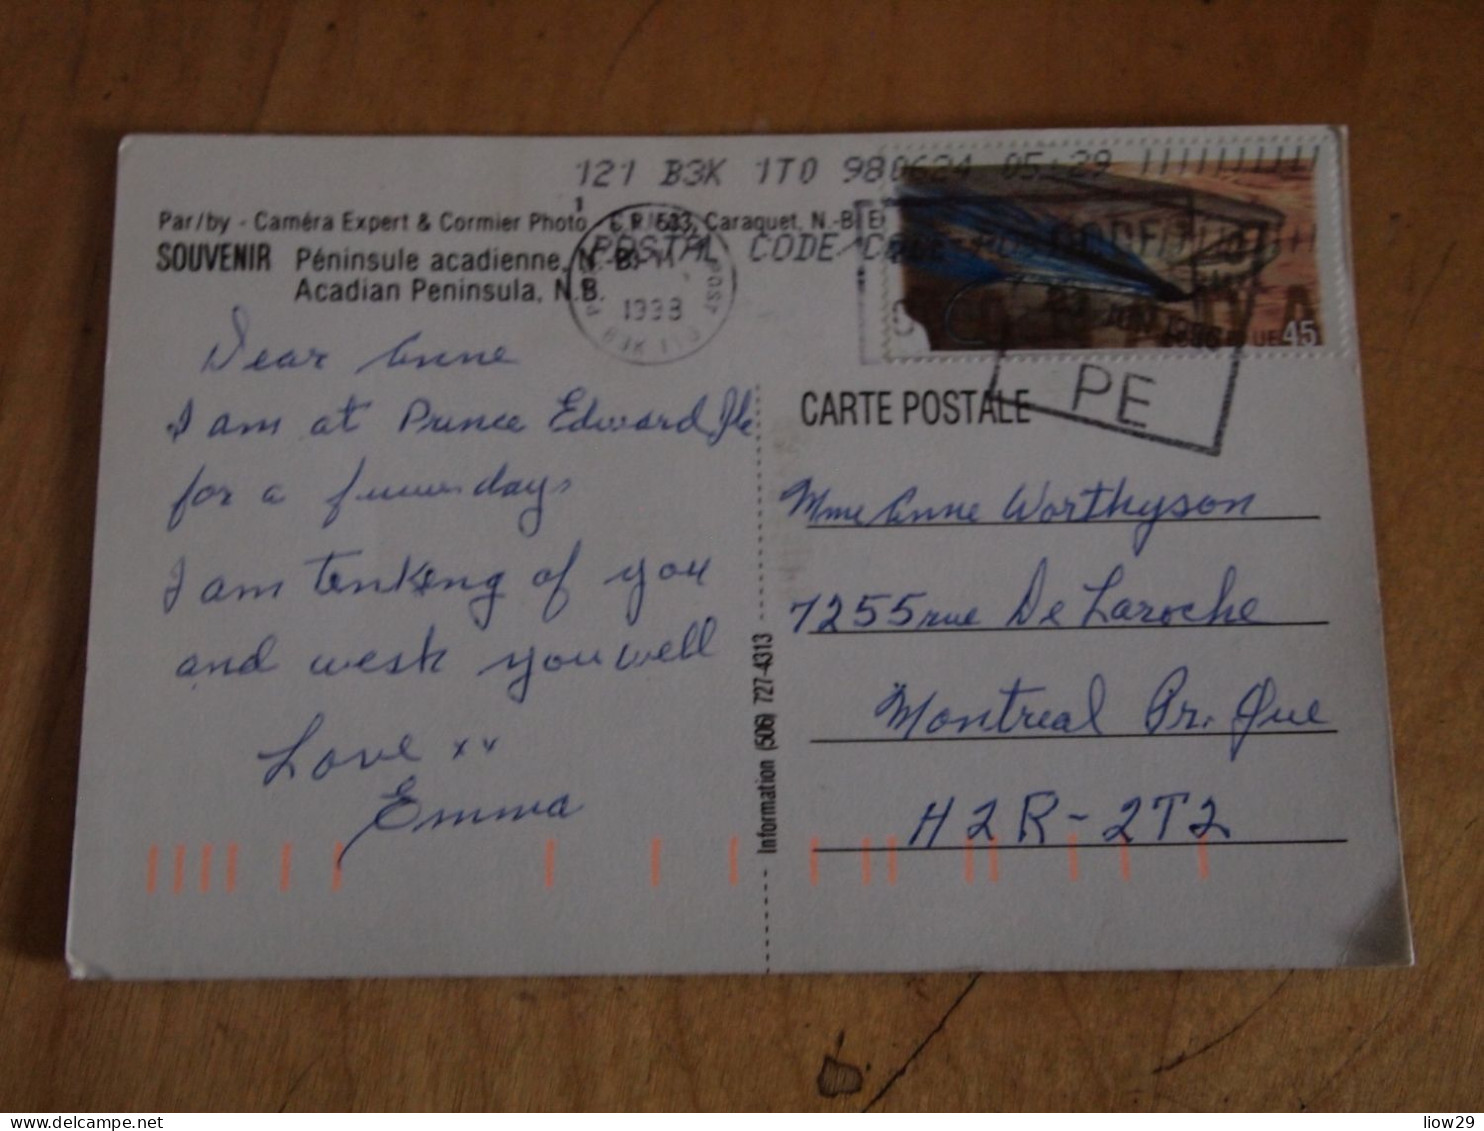 121 B3K 1T0 980624 05:29
Par/by - Caméra Expert & Cormier Photo, C.P. 533, Caraquet, N.-B. E
POSTAL CODE/CODE
SOUVENIR Péninsule acadienne, N.-B.
Acadian Peninsula, N.B.
1998
45
PE
CARTE POSTALE
Dear Anne
I am at Prince Edward Ile
for a days
I am tenking of you
and wesh you well
Love xx
Emma
Information (506) 727-4313
Mme Anne Worthyson
7255 rue De Laroche
Montreal Pr. Que
H2R-2T2
Delcampe.net
liow29